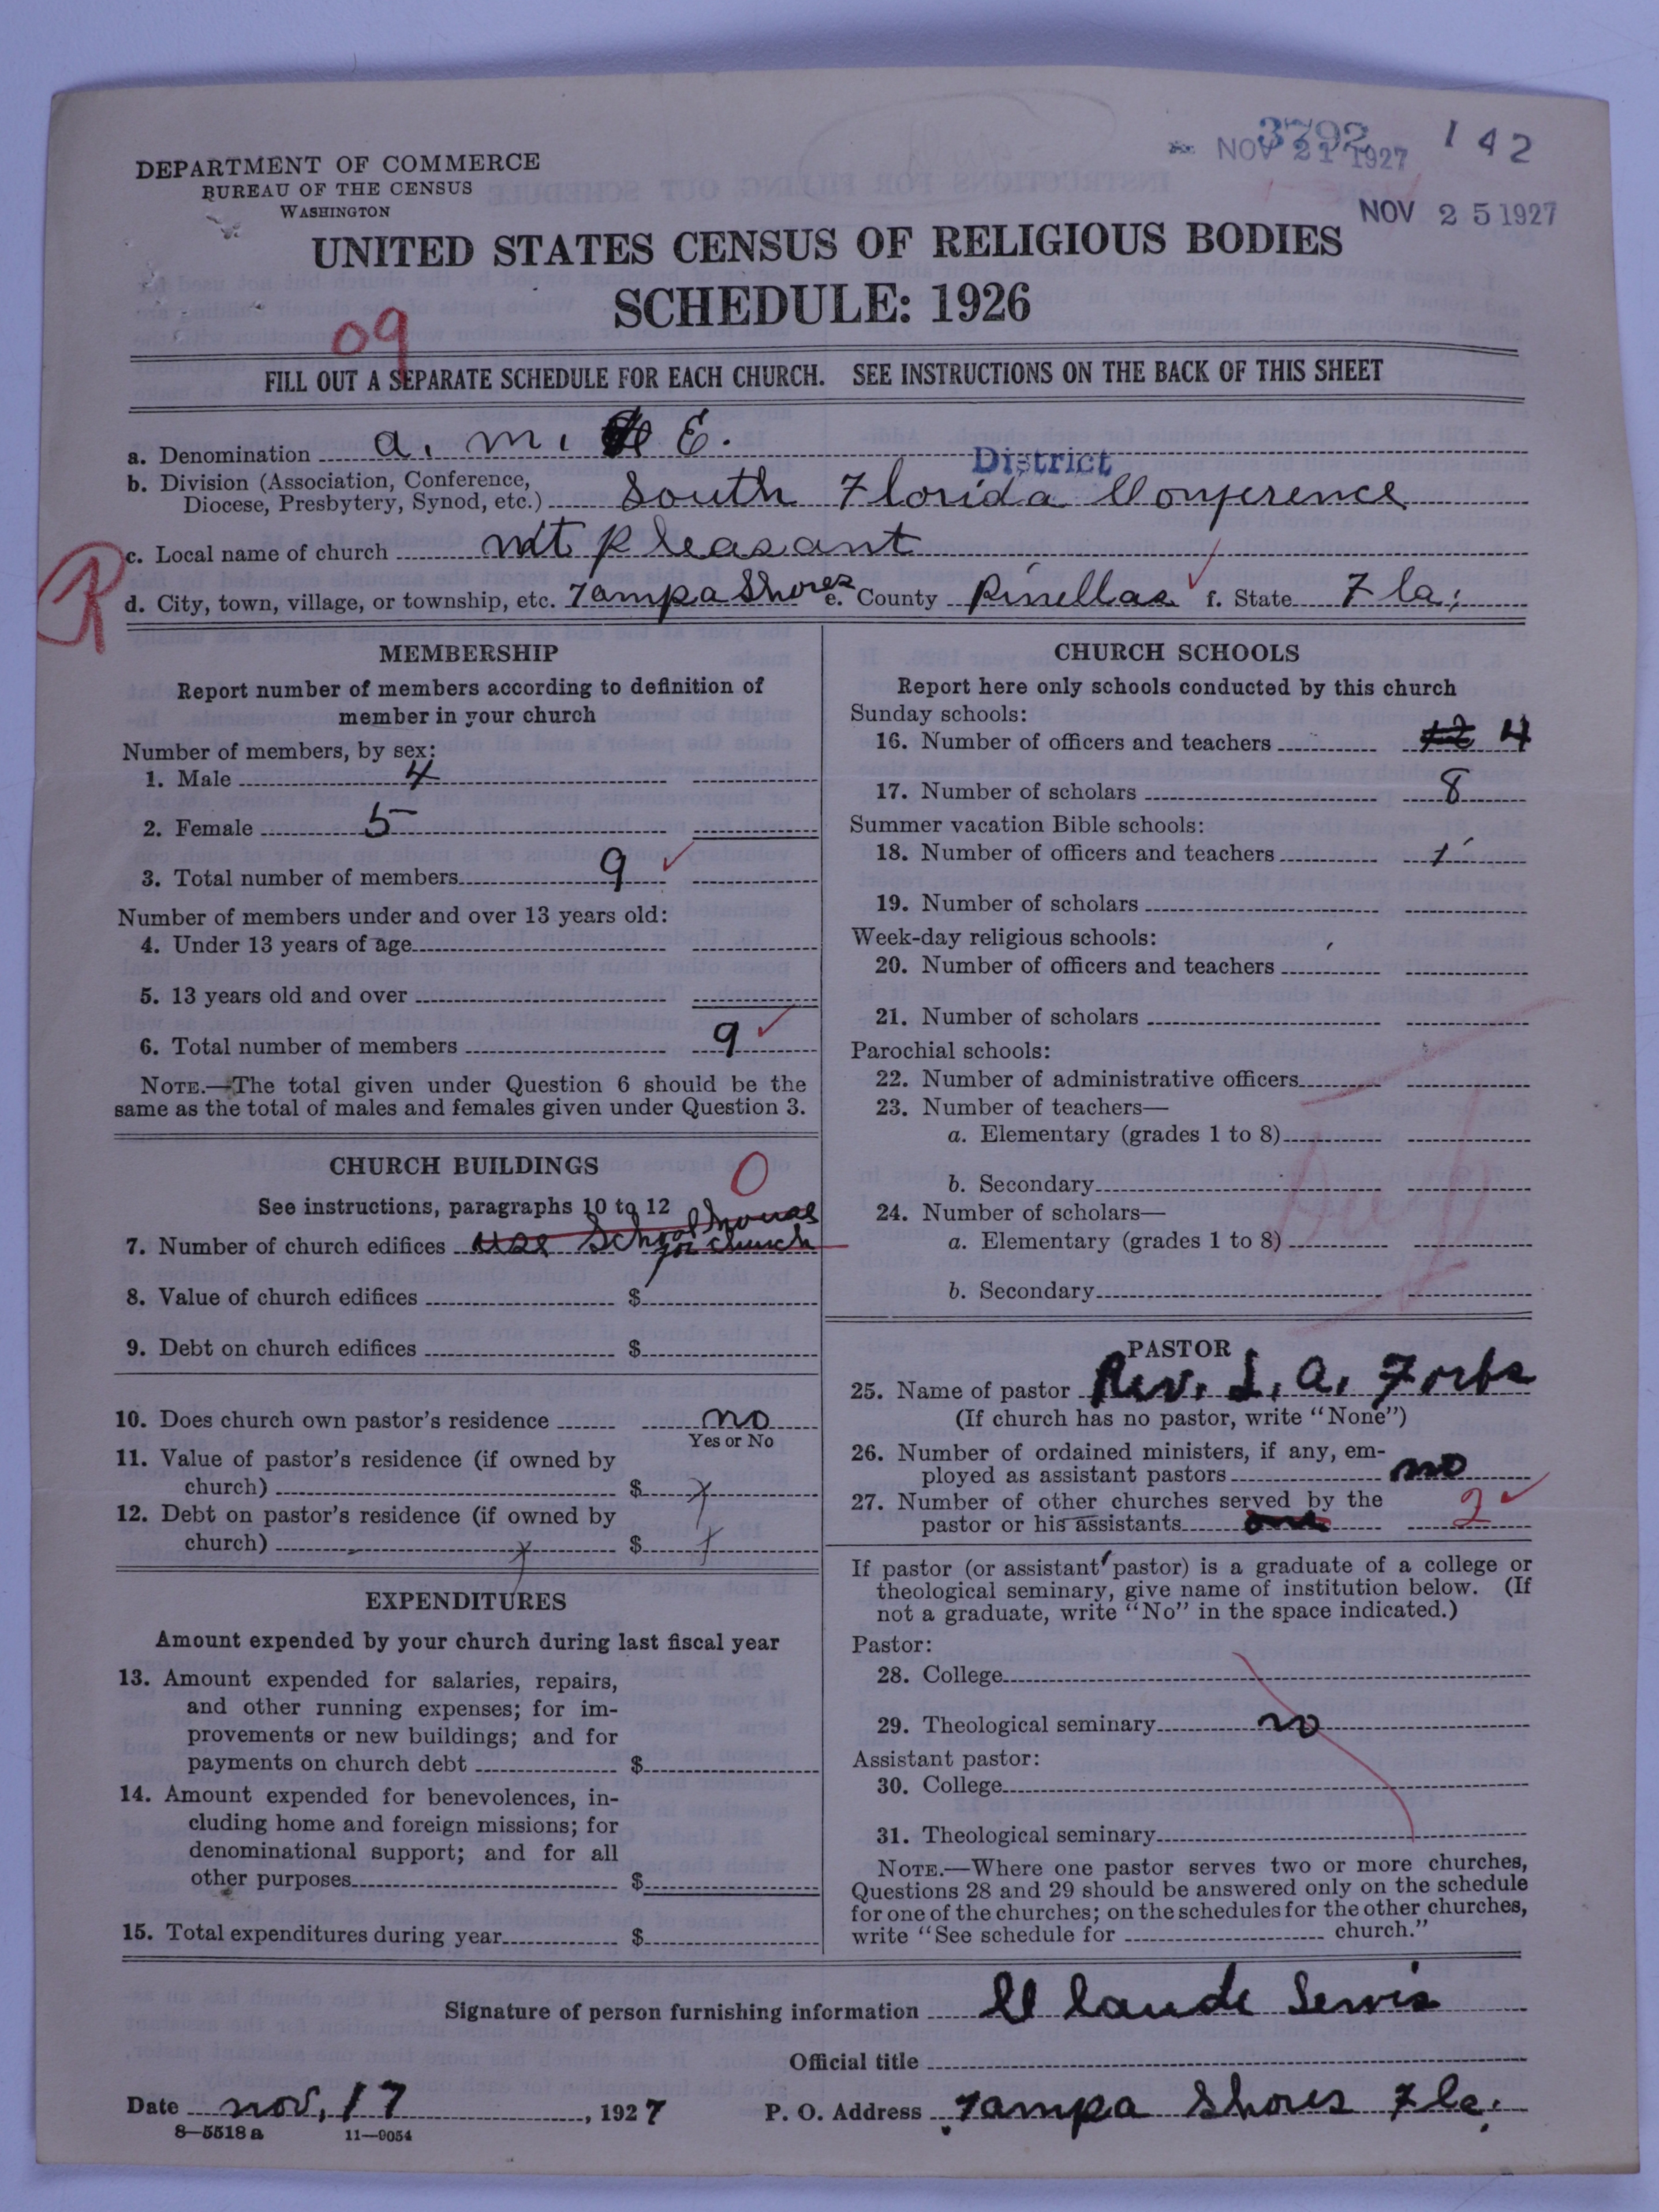 3792
NOV 21 1927
142
NOV 25 1927
DEPARTMENT OF COMMERCE
BUREAU OF THE CENSUS
WASHINGTON
UNITED STATES CENSUS OF RELIGIOUS BODIES
SCHEDULE: 1926
09
FILL OUT A SEPARATE SCHEDULE FOR EACH CHURCH. SEE INSTRUCTIONS ON THE BACK OF THIS SHEET
a. Denomination a. m. E.
District
b. Division (Association, Conference,
Diocese, Presbytery, Synod, etc.) South Florida Conference
R
c. Local name of church mt pleasant
d. City, town, village, or township, etc. Tampa Shores e. County Pinellas f. State Fla.
MEMBERSHIP
Report number of members according to definition of
member in your church
Number of members, by sex:
1. Male 4
2. Female 5
3. Total number of members 9
Number of members under and over 13 years old:
4. Under 13 years of age
5. 13 years old and over
6. Total number of members 9
NOTE.—The total given under Question 6 should be the
same as the total of males and females given under Question 3.
CHURCH BUILDINGS
0
See instructions, paragraphs 10 to 12
7. Number of church edifices use School house
for church
8. Value of church edifices $
9. Debt on church edifices $
10. Does church own pastor's residence no
Yes or No
11. Value of pastor's residence (if owned by
church) $
12. Debt on pastor's residence (if owned by
church) $
EXPENDITURES
Amount expended by your church during last fiscal year
13. Amount expended for salaries, repairs,
and other running expenses; for im-
provements or new buildings; and for
payments on church debt $
14. Amount expended for benevolences, in-
cluding home and foreign missions; for
denominational support; and for all
other purposes $
15. Total expenditures during year $
CHURCH SCHOOLS
Report here only schools conducted by this church
Sunday schools:
16. Number of officers and teachers 12 4
17. Number of scholars 8
Summer vacation Bible schools:
18. Number of officers and teachers
19. Number of scholars
Week-day religious schools:
20. Number of officers and teachers
21. Number of scholars
Parochial schools:
22. Number of administrative officers
23. Number of teachers—
a. Elementary (grades 1 to 8)
b. Secondary
24. Number of scholars—
a. Elementary (grades 1 to 8)
b. Secondary
PASTOR
25. Name of pastor Rev. L. A. Forbs
(If church has no pastor, write "None")
26. Number of ordained ministers, if any, em-
ployed as assistant pastors no
27. Number of other churches served by the
pastor or his assistants one 2
If pastor (or assistant pastor) is a graduate of a college or
theological seminary, give name of institution below. (If
not a graduate, write "No" in the space indicated.)
Pastor:
28. College
29. Theological seminary no
Assistant pastor:
30. College
31. Theological seminary
NOTE.—Where one pastor serves two or more churches,
Questions 28 and 29 should be answered only on the schedule
for one of the churches; on the schedules for the other churches,
write "See schedule for church."
Signature of person furnishing information Claude Lewis
Official title
Date nov, 17, 1927 P. O. Address Tampa Shores Fla.
8—5518a 11—9054